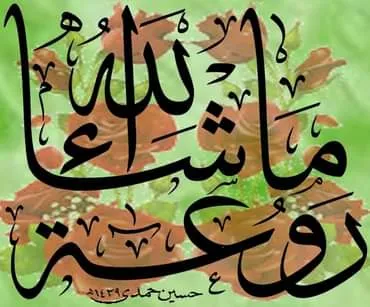 ما شاء الله
روعة
حسين حمدي ١٤٣٩هـ